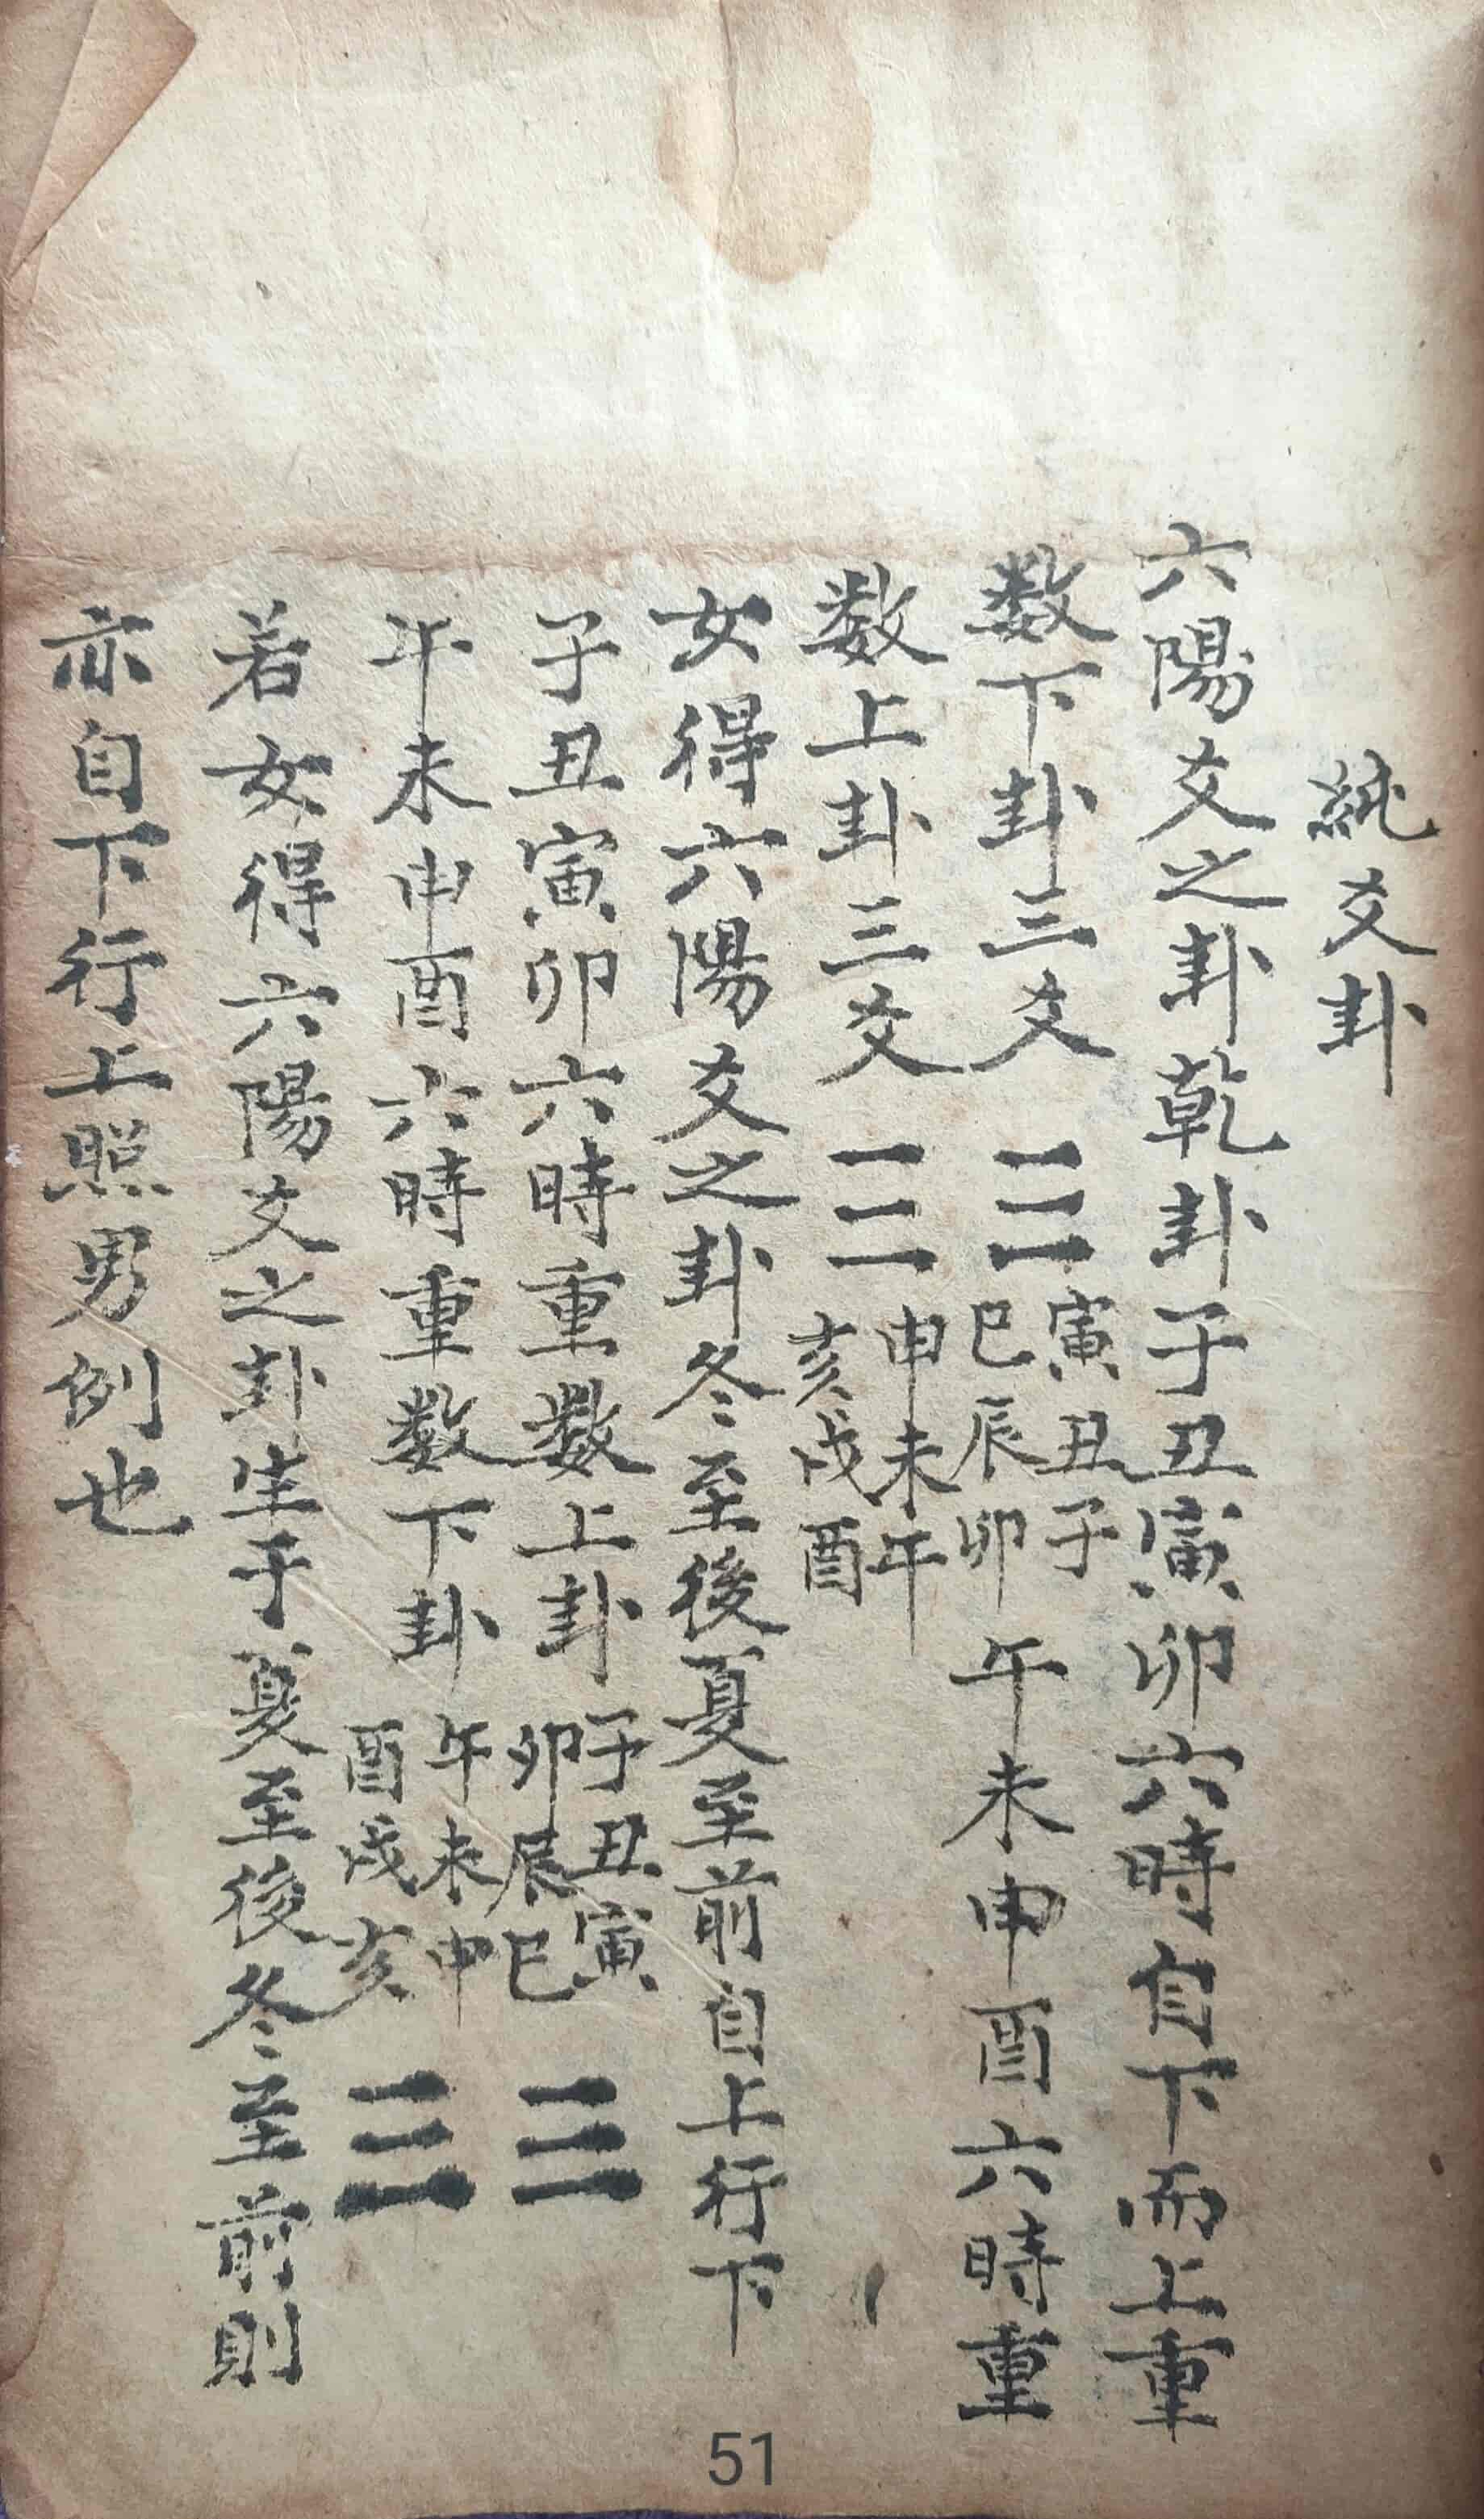 純爻卦
六陽爻之卦乾卦子丑寅卯六時自下而上重
数下卦三爻☰寅丑子巳辰卯午未申酉六時重
数上卦三爻☰申未午亥戌酉
女得六陽爻之卦冬至後夏至前自上行下
子丑寅卯六時重数上卦子丑寅卯辰巳☰
午未申酉六時重数下卦午未申酉戌亥☰
若女得六陽爻之卦生于夏至後冬至前則
亦自下行上照男例也
51